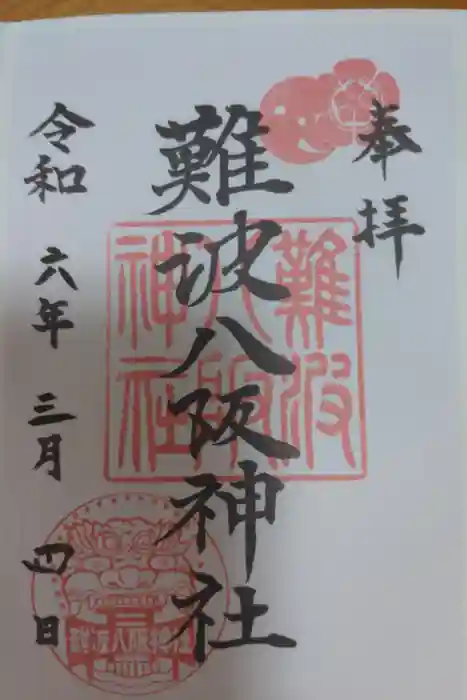 奉拝
難波八阪神社
令和 六年 三月 四日
難波八阪神社
難波八阪神社